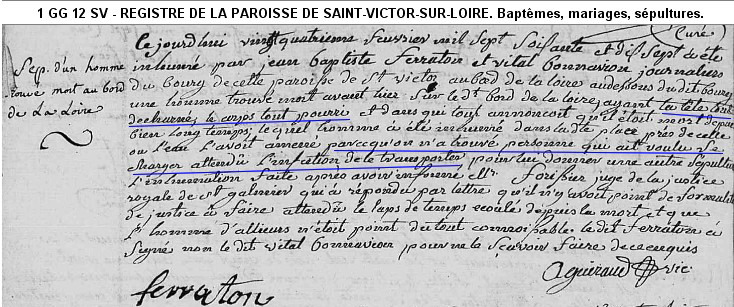 1 GG 12 SV - REGISTRE DE LA PAROISSE DE SAINT-VICTOR-SUR-LOIRE. Baptêmes, mariages, sépultures.
Curé
Sep. d'un homme
trouvé mort au bord
de la Loire
Ce jourdhui vingtquatrieme feuvrier mil sept soisante et dis sept a été
inhumé par jean baptiste ferraton et vital bonnaviron journaliers
du bourg de cette paroisse de St victor au bord de la loire au dessous du dit bourg
un homme trouvé mort avant hier sur le dt bord de la loire, ayant la tête tout
decharné, le corps tout pourri et dans qui tout annoncoit qu'il étoit mort depuis
bien long temps; lequel homme a été inhumé dans la dte place près de celle
ou l'eau l'avoit amené parcequ'on n'a trouvé personne qui ait voulu se
charger attendu l'infection de le transporter pour lui donner une autre sépulture
l'inhumation faite après avoir informé Mr. Forisier juge de la justice
royale de St galmier qui a répondu par lettre qu'il n'y avoit point de formalité
de justice à faire attendu le laps de temps ecoulé depuis la mort et que
l'homme d'allieurs n'étoit point du tout connoissable. le dit ferraton a
signé non le dit vital bonnaviron pour ne le scavoir faire de ce requis
ferraton
Aguéraud vic.